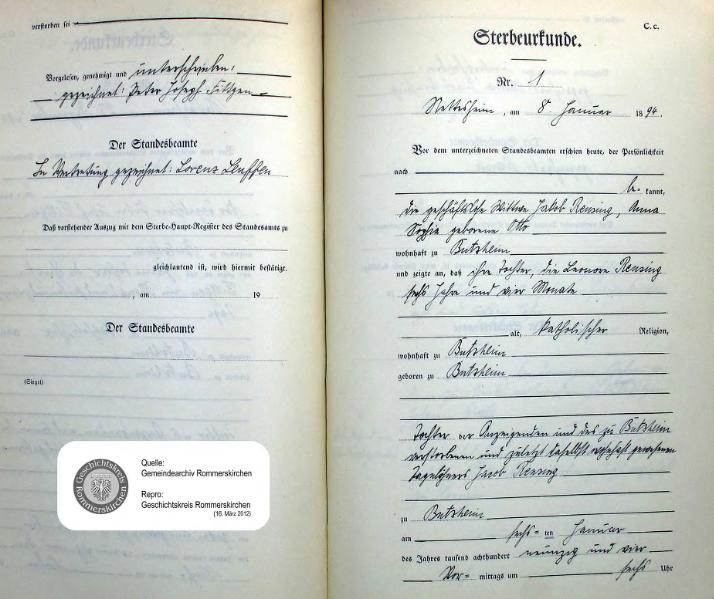 verstorben sei
Vorgelesen, genehmigt und unterschrieben.
gezeichnet: Peter Joseph Füttgen
Der Standesbeamte
In Vertretung gezeichnet: Lorenz
Daß vorstehender Auszug mit dem Sterbe-Haupt-Register des Standesamts zu
gleichlautend ist, wird hiermit bestätigt.
, am 19
Der Standesbeamte
(Siegel)
Quelle:
Gemeindearchiv Rommerskirchen
Repro:
Geschichtskreis Rommerskirchen
(16. März 2012)
Geschichtskreis
Rommerskirchen
C. c.
Sterbeurkunde.
Nr. 1
Nettesheim, am 8 Januar 1894.
Vor dem unterzeichneten Standesbeamten erschien heute, der Persönlichkeit
nach
be kannt,
die geschäftslose Wittwe Jakob Rensing, Anna
Sophia geborene Otto
wohnhaft zu Butzheim
und zeigte an, daß ihre Tochter, die Leonore Rensing
sechs Jahre und vier Monate
alt, katholischer Religion,
wohnhaft zu Butzheim
geboren zu Butzheim
Tochter der Anzeigenden und des zu Butzheim
verstorbenen und zuletzt daselbst wohnhaft gewesenen
Tagelöhners Jacob Rensing
zu Butzheim
am sechs-ten Januar
des Jahres tausend achthundert neunzig und vier
Vor-mittags um sechs Uhr